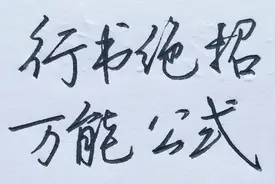 行书绝招
万能公式